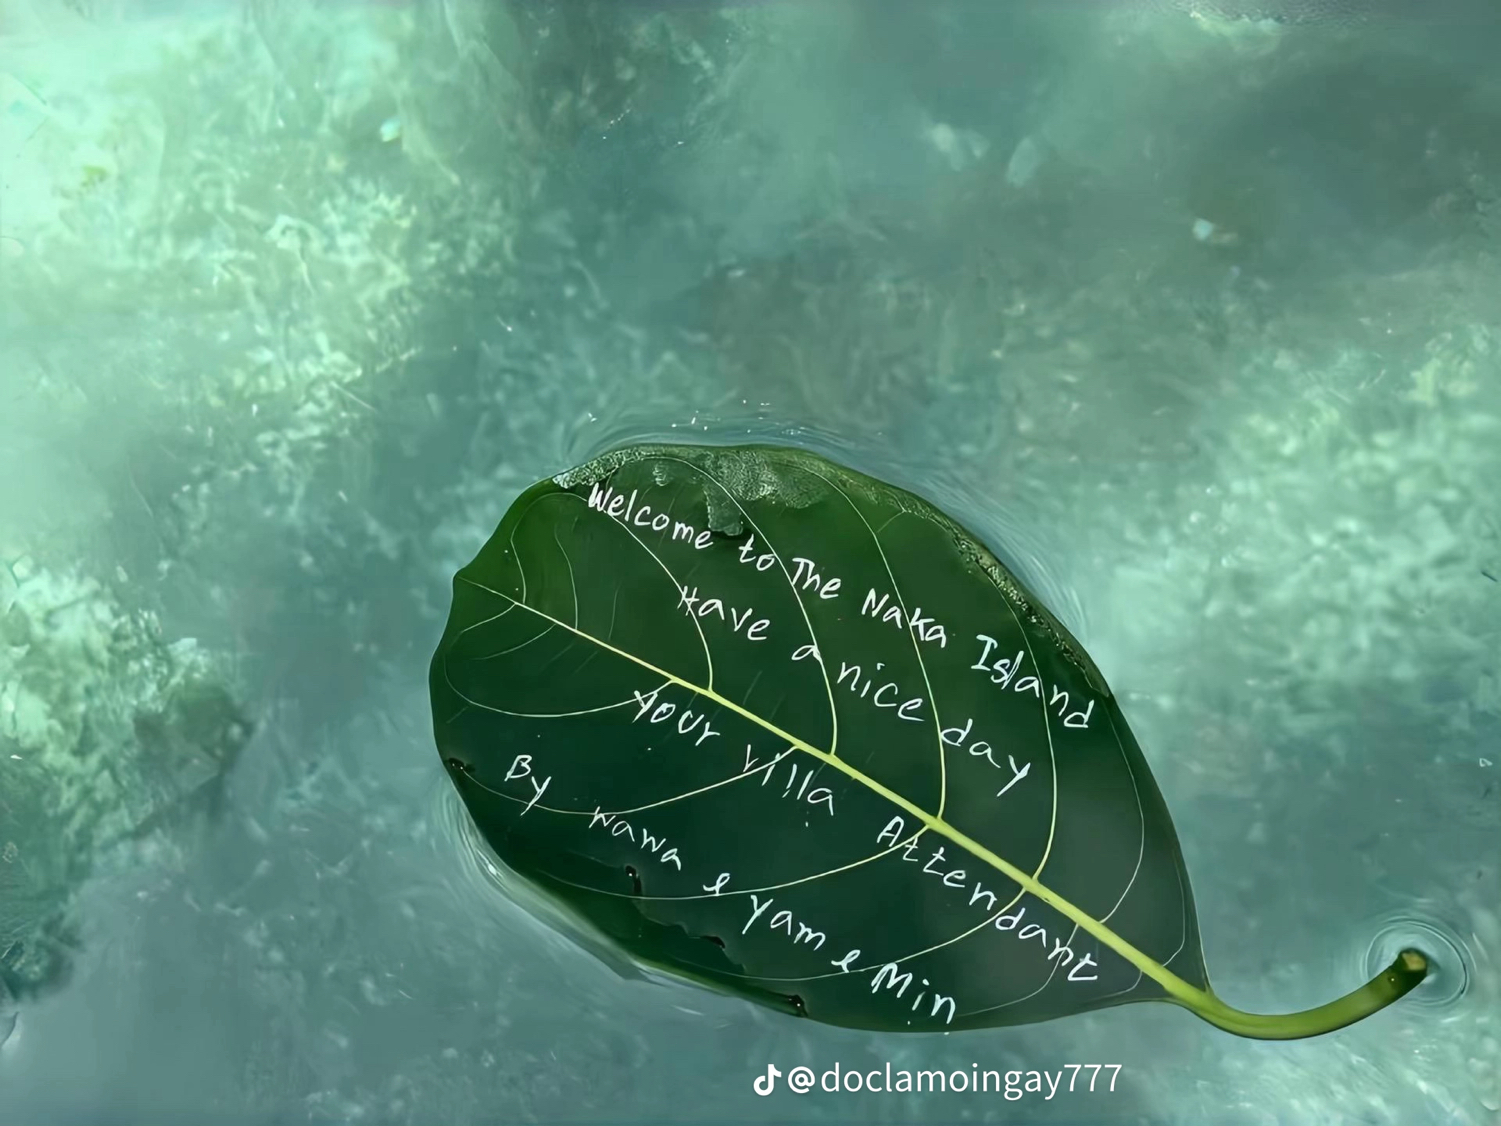 Welcome to The Naka Island
Have a nice day
Your villa Attendant
By wawa & yam & Min
@doclamoingay777